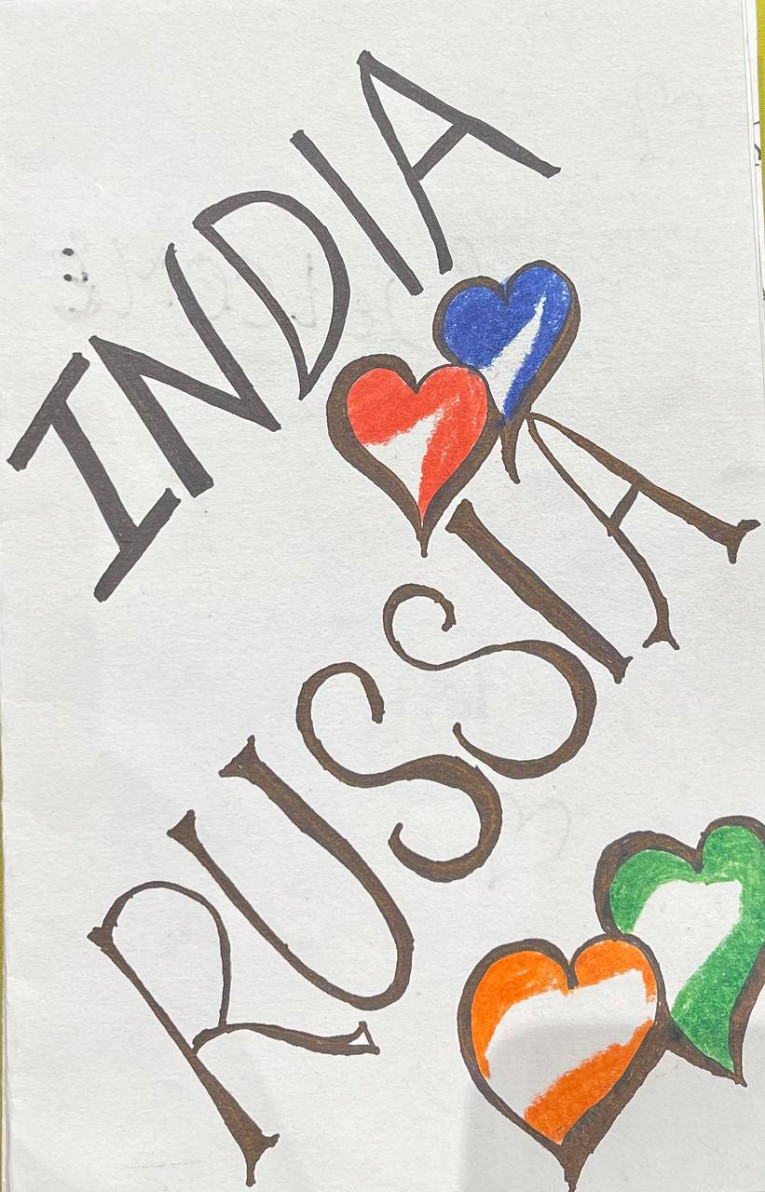 INDIA
RUSSIA